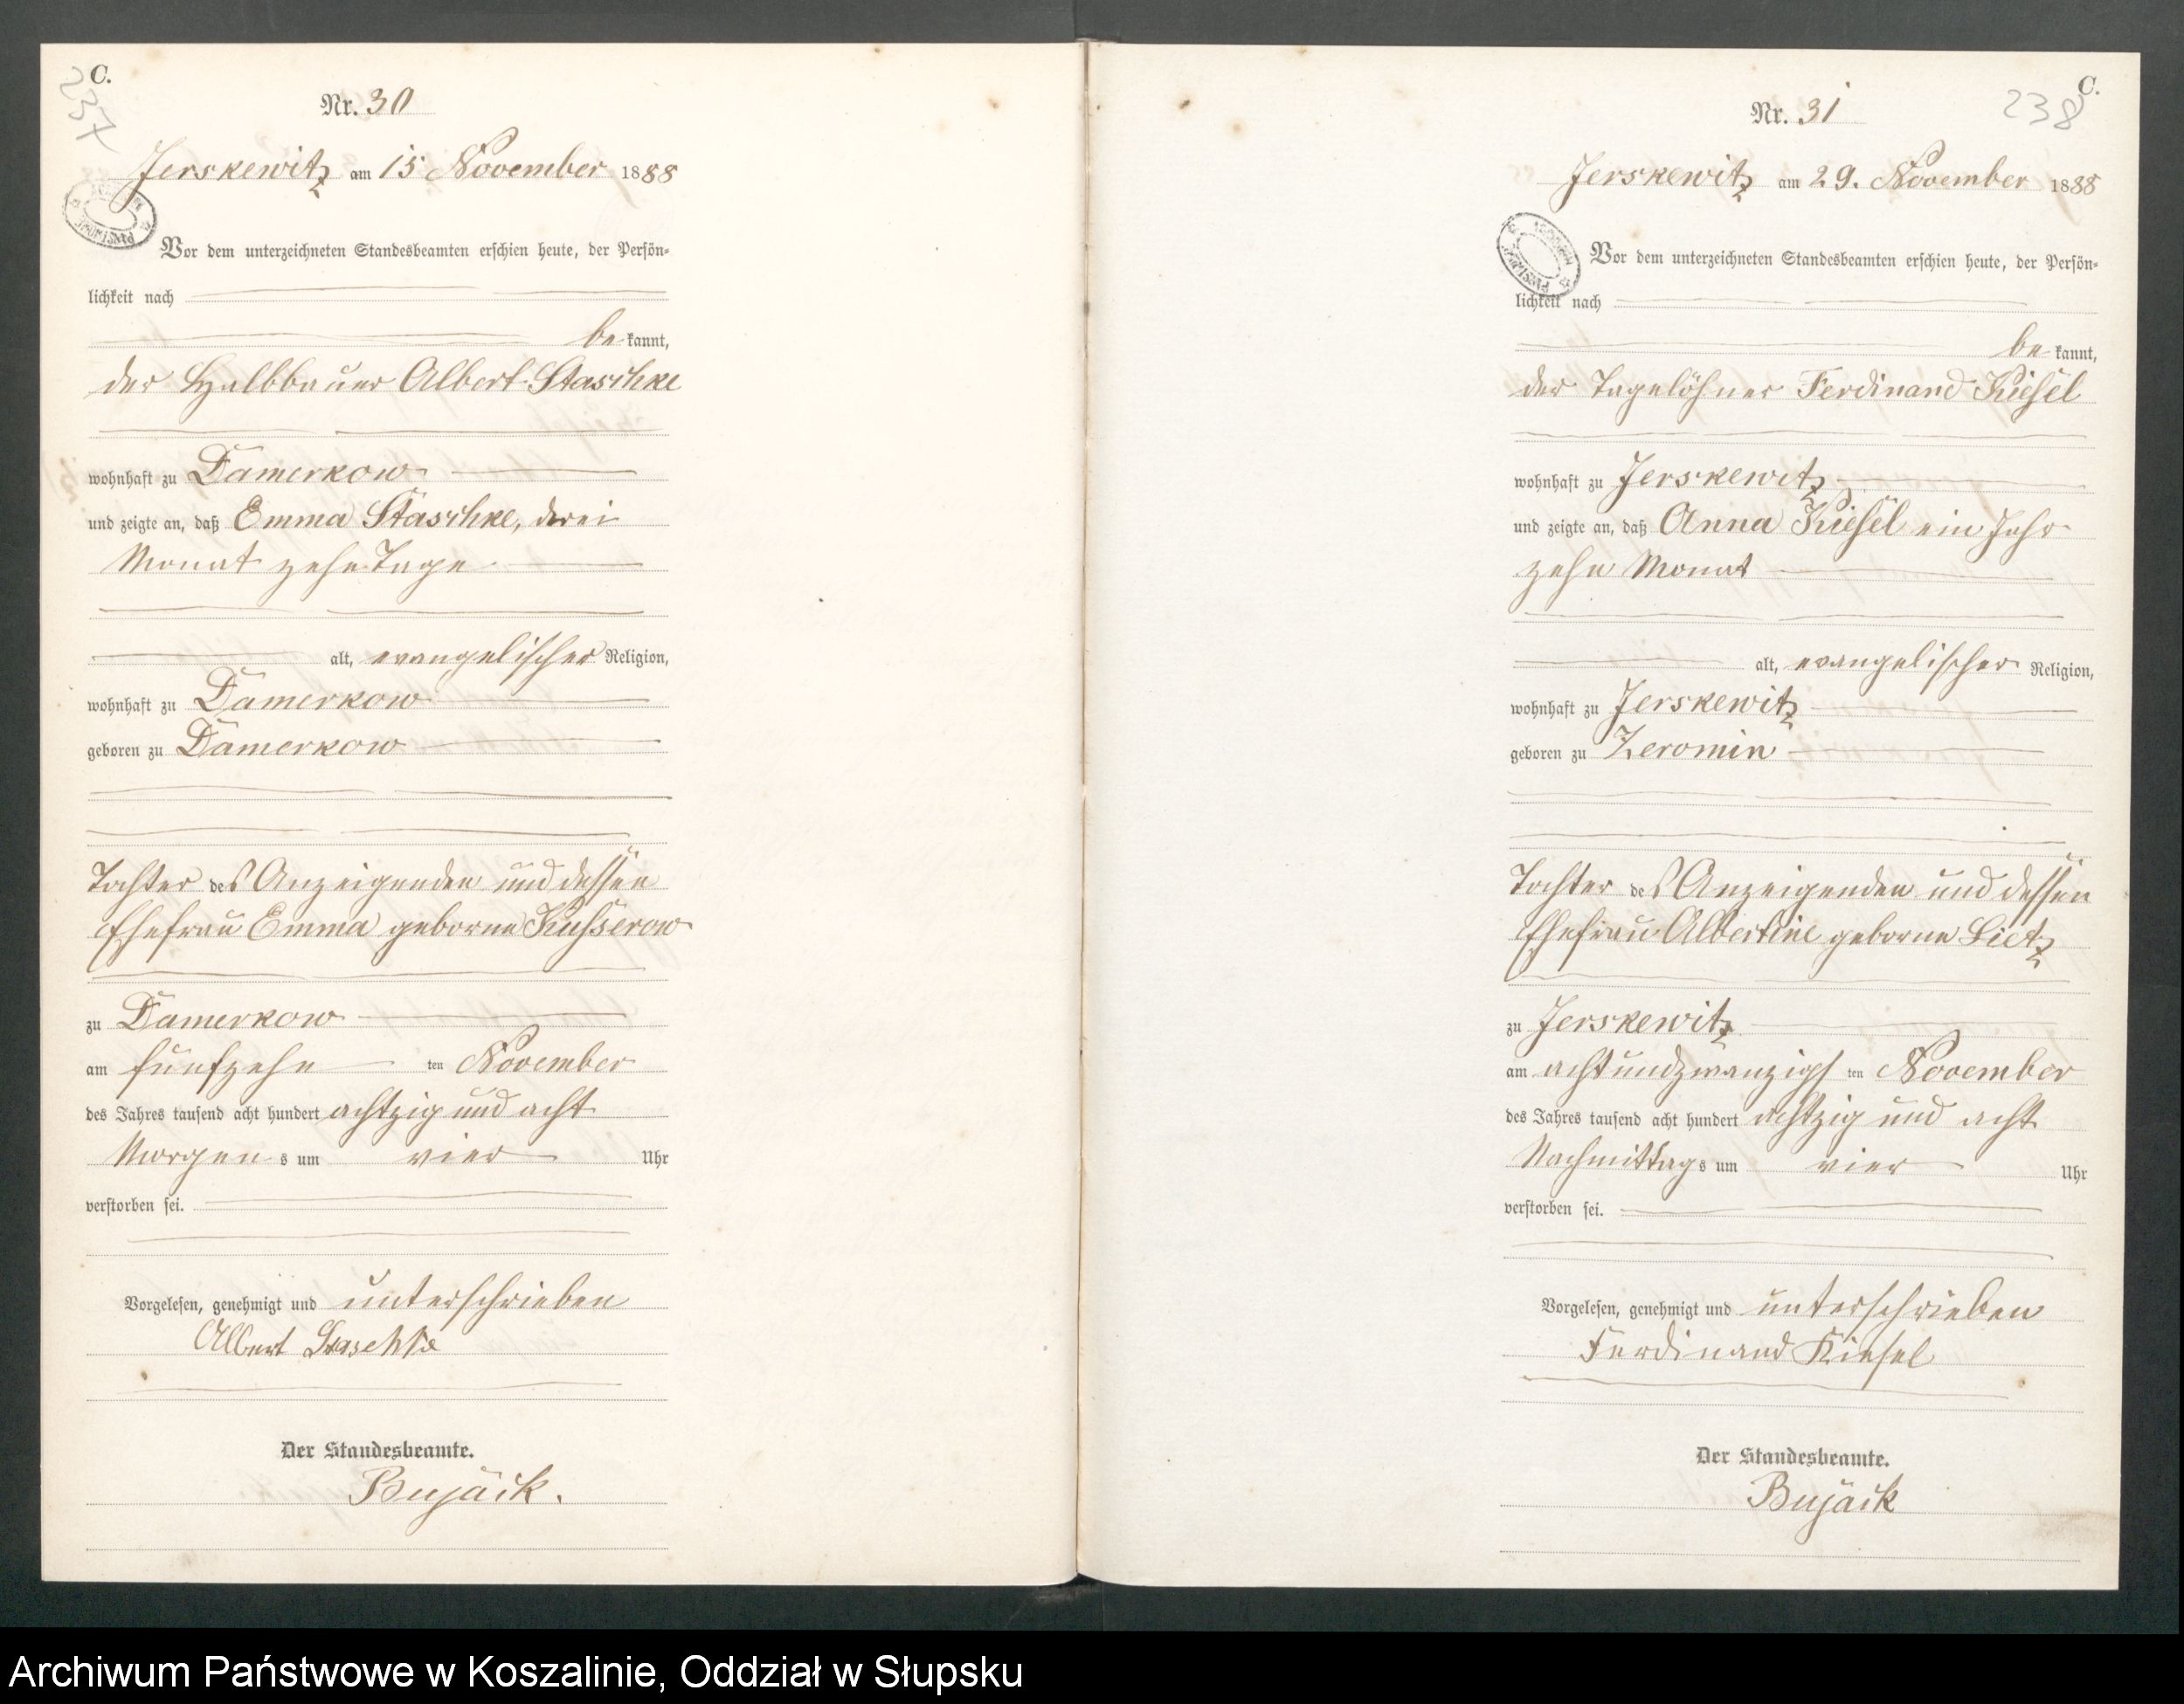 C.
237
Nr. 30
Jerskewitz am 15 November 1888
Vor dem unterzeichneten Standesbeamten erschien heute, der Persön-
lichkeit nach
be kannt,
der Halbbauer Albert Staschke
wohnhaft zu Damerkow
und zeigte an, daß Emma Staschke, drei
Monat zehn Tage
alt, evangelischer Religion,
wohnhaft zu Damerkow
geboren zu Damerkow
Tochter des Anzeigenden und dessen
Ehefrau Emma geborne Kusserow
zu Damerkow
am fünfzehn ten November
des Jahres tausend acht hundert achtzig und acht
Morgen s um vier Uhr
verstorben sei.
Vorgelesen, genehmigt und unterschrieben
Albert Staschke
Der Standesbeamte.
Bujack.
C.
238
Nr. 31
Jerskewitz am 29. November 1888
Vor dem unterzeichneten Standesbeamten erschien heute, der Persön-
lichkeit nach
be kannt,
der Tagelöhner Ferdinand Kiesel
wohnhaft zu Jerskewitz
und zeigte an, daß Anna Kiesel ein Jahr
zehn Monat
alt, evangelischer Religion,
wohnhaft zu Jerskewitz
geboren zu Zeromin
Tochter des Anzeigenden und dessen
Ehefrau Albertine geborne Lietz
zu Jerskewitz
am achtundzwanzigs ten November
des Jahres tausend acht hundert achtzig und acht
Nachmittag s um vier Uhr
verstorben sei.
Vorgelesen, genehmigt und unterschrieben
Ferdinand Kiesel
Der Standesbeamte.
Bujack
Archiwum Państwowe w Koszalinie, Oddział w Słupsku